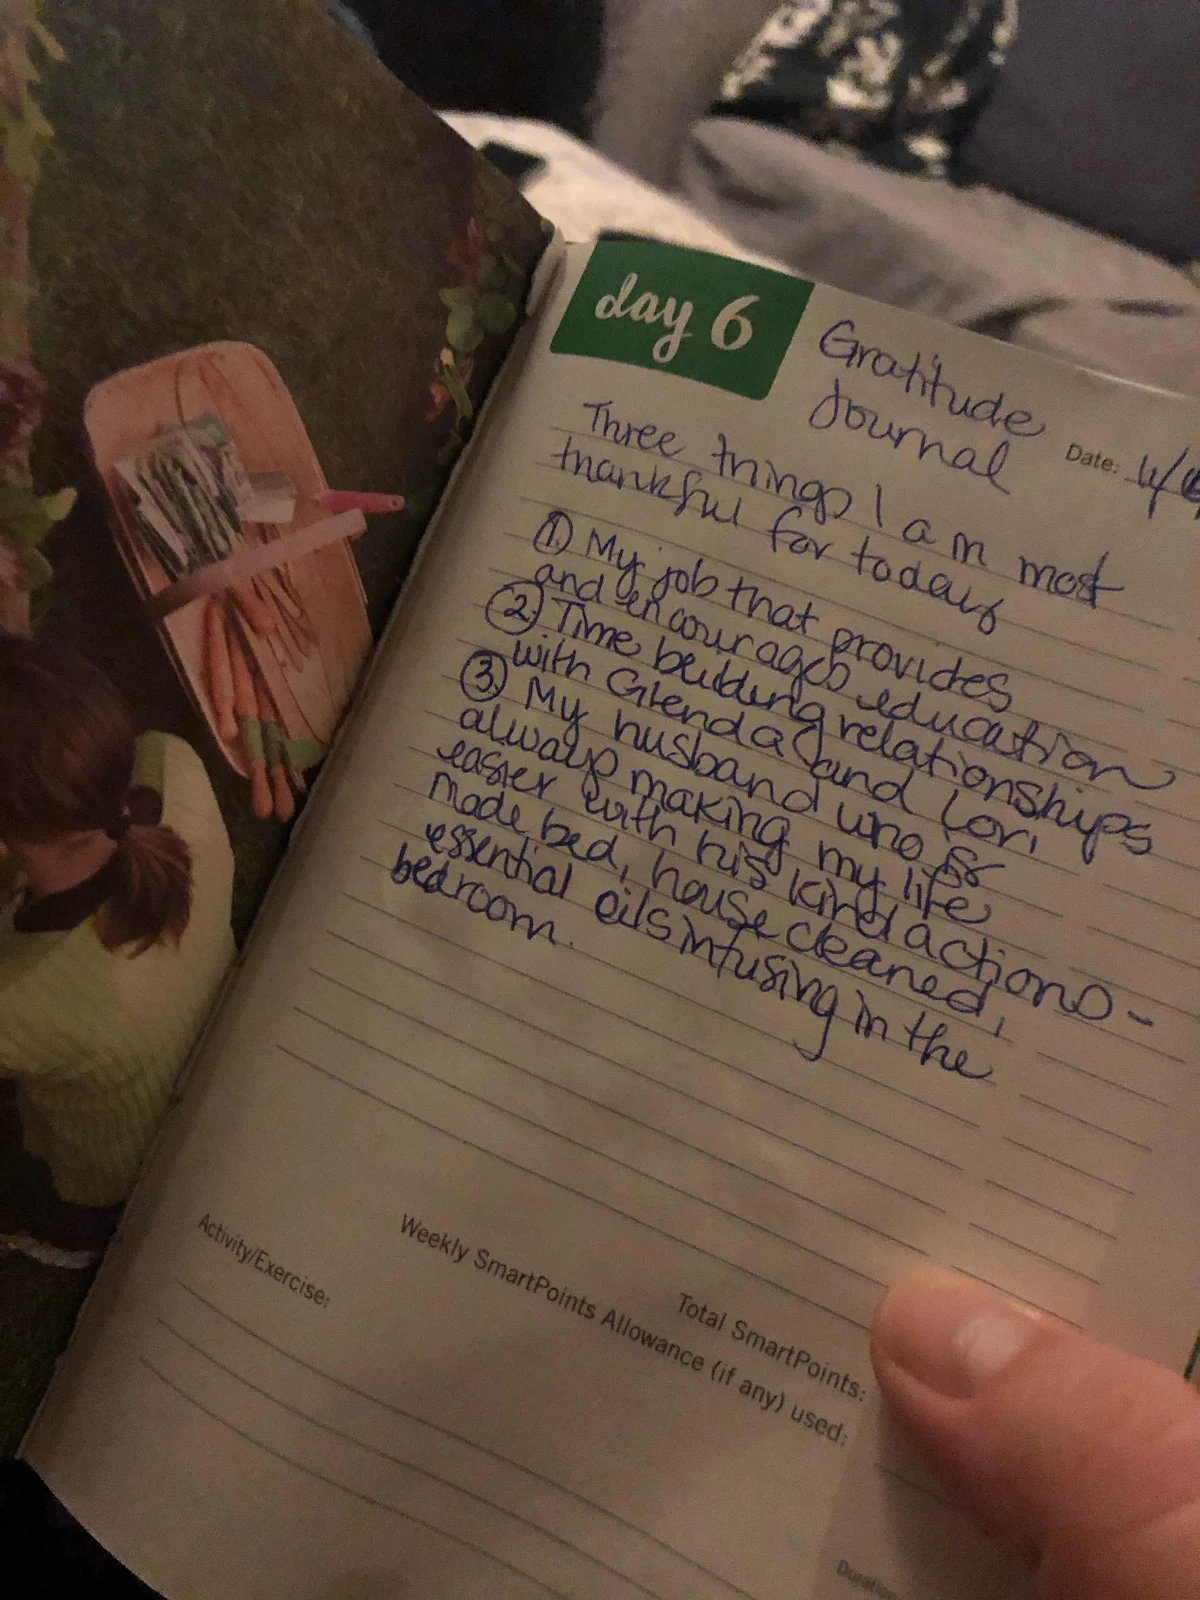 day 6
Gratitude
Journal
Date: 4/
Three things I am most
thankful for today
① My job that provides
and encourages education
② Time building relationships
with Glenda and Lori
③ My husband who is
always making my life
easier with his kind actions -
made bed, house cleaned,
essential oils infusing in the
bedroom.
Total SmartPoints:
Weekly SmartPoints Allowance (if any) used:
Activity/Exercise: